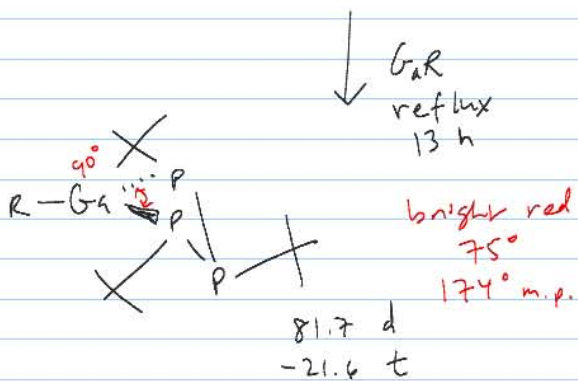 GaR
reflux
13 h
90°
P
R - Ga
P
P
bright red
75°
174° m.p.
81.7 d
-21.6 t